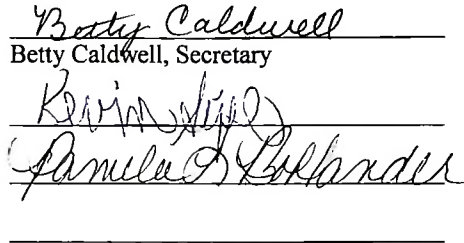 Betty Caldwell
Betty Caldwell, Secretary
Kevin
Pamela Bohlander